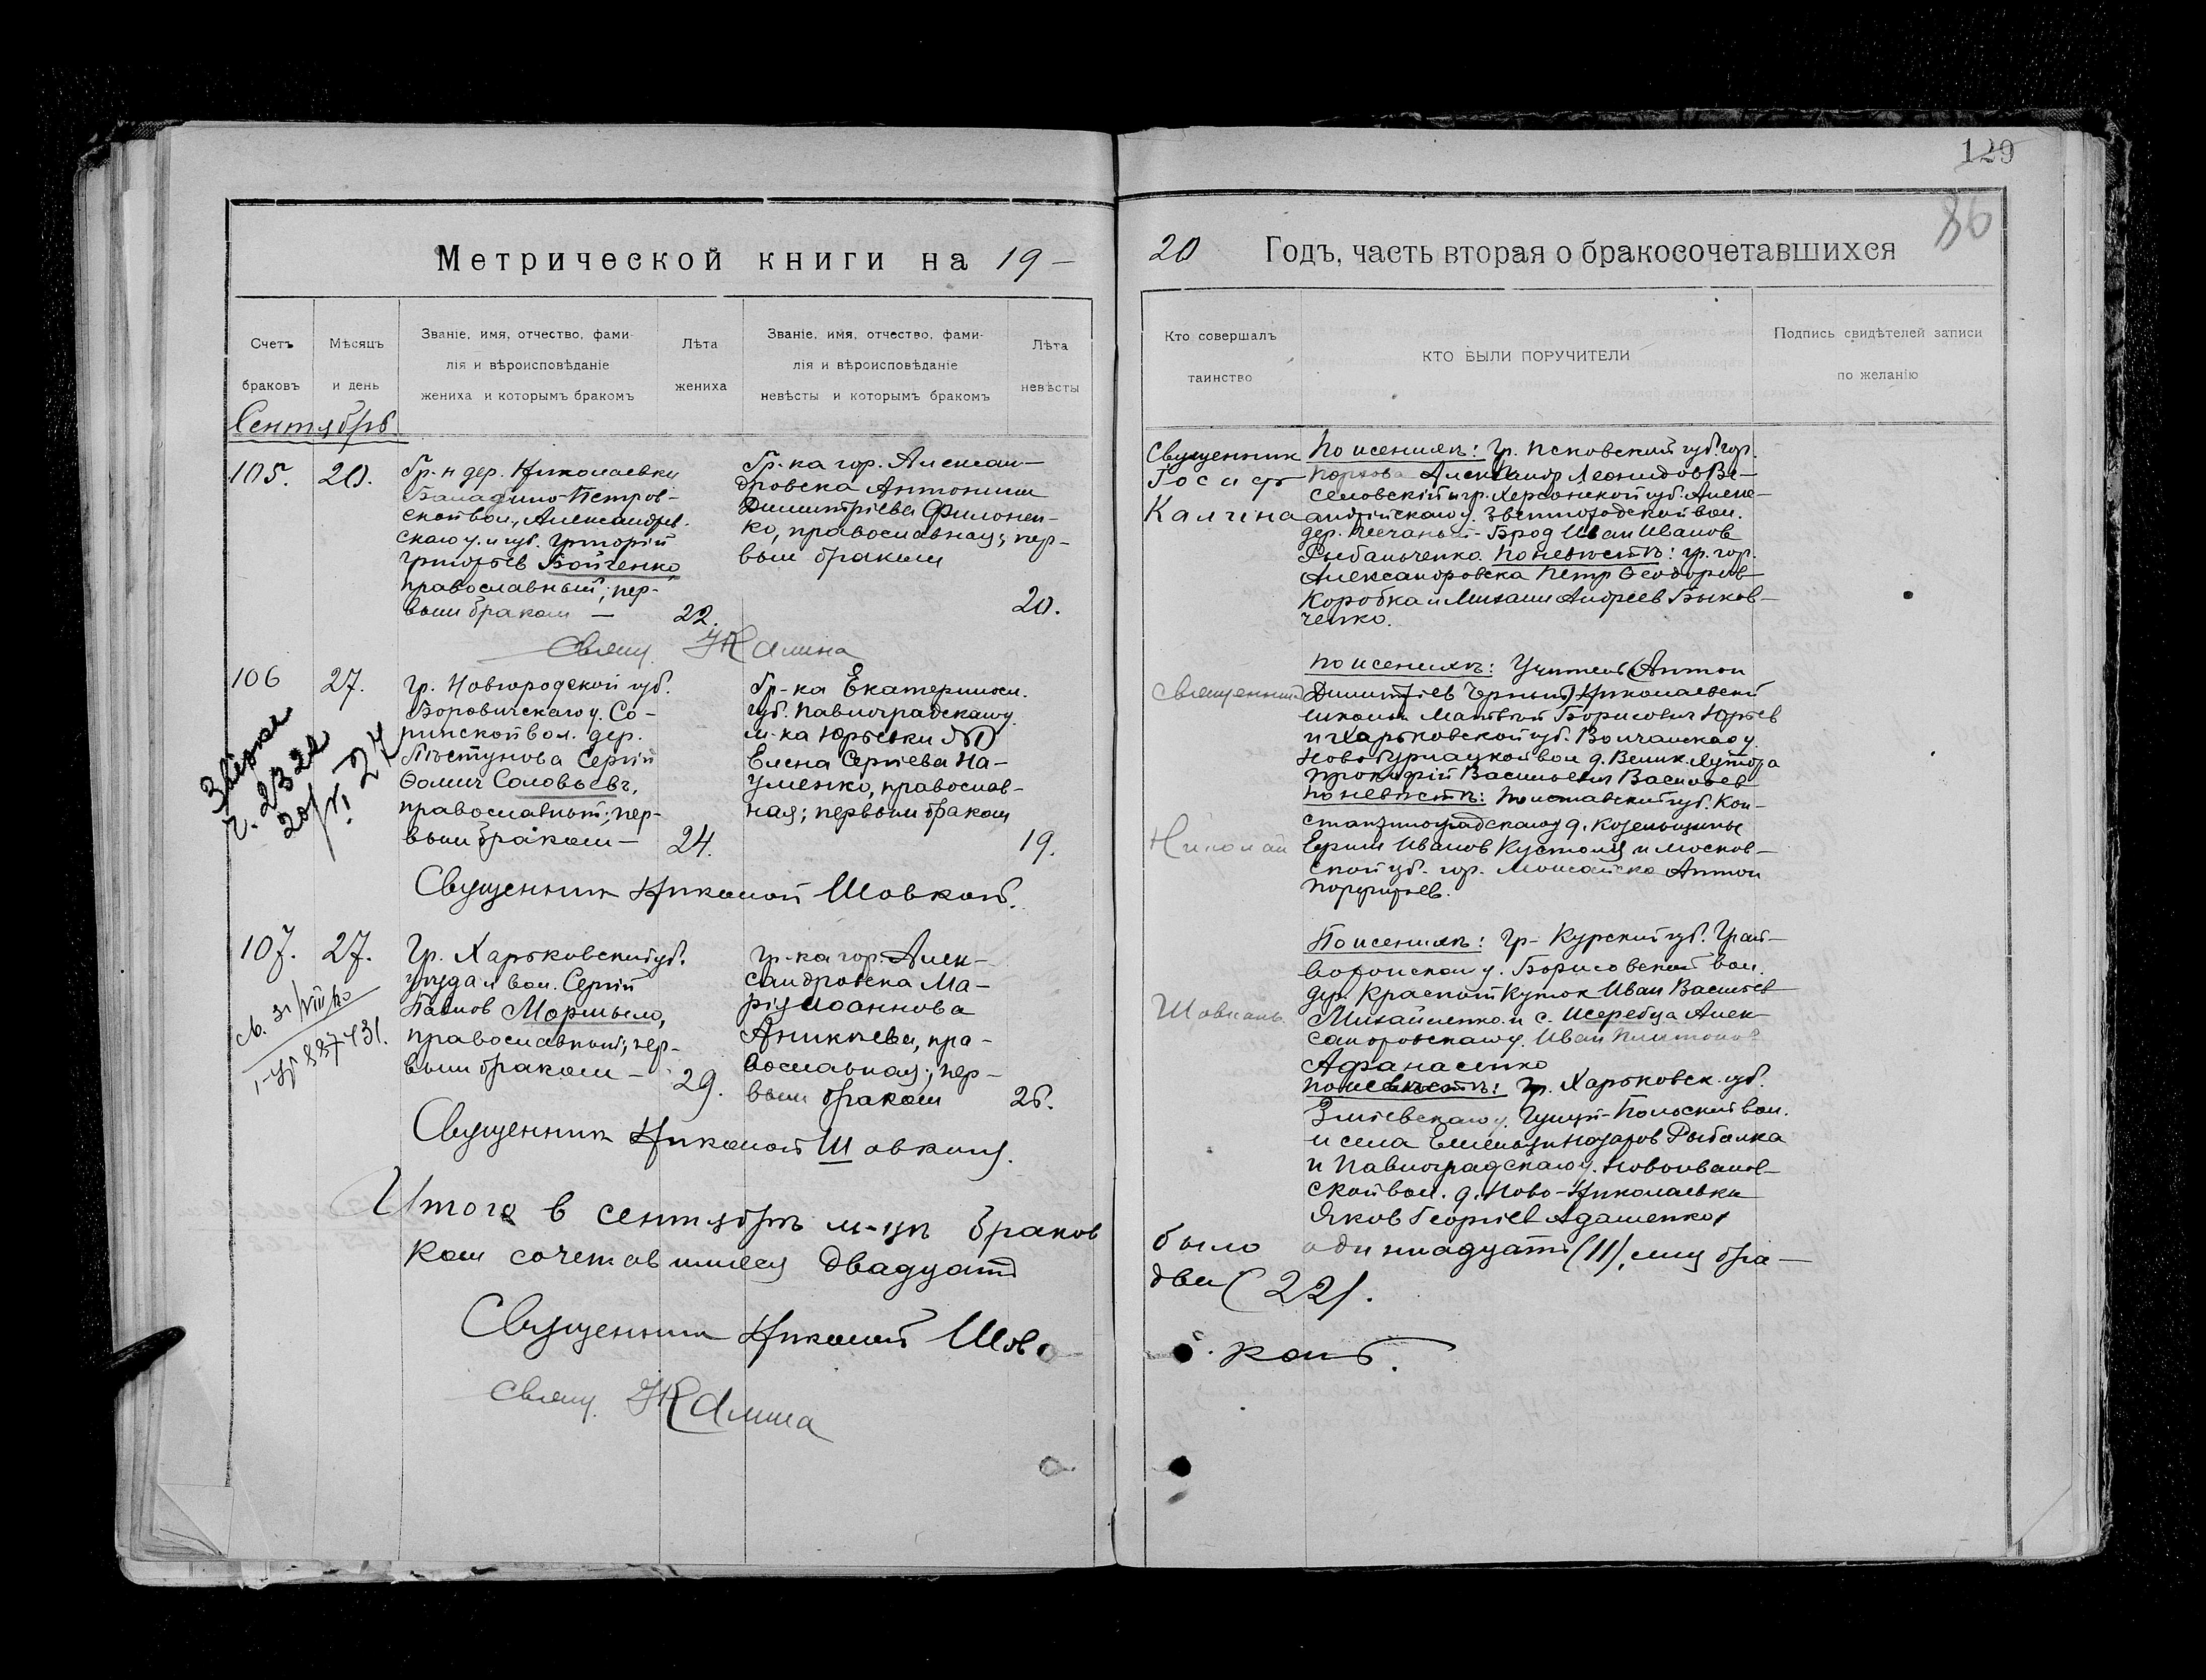 129
86
Метрической книги на 19-
20 Годъ, часть вторая о бракосочетавшихся
Счетъ браковъ
Мѣсяцъ и день
Званіе, имя, отчество, фами-
лія и вѣроисповѣданіе
жениха и которымъ бракомъ
Лѣта жениха
Званіе, имя, отчество, фами-
лія и вѣроисповѣданіе
невѣсты и которымъ бракомъ
Лѣта невѣсты
Кто совершалъ
таинство
КТО БЫЛИ ПОРУЧИТЕЛИ
Подпись свидѣтелей записи
по желанію
Сентябрь
105. 20.
Гр-н дер. Николаевки
Баладино-Петров-
ской вол., Александров.
скаго у. и губ. Григорій
Григорьев Бойченко
православный; пер-
вым браком — 22.
Гр-ка гор. Алексан-
дровска Антонина
Димитріева Филонен-
ко, православная; пер-
вым браком
20.
Священник
Иосиф
Калина
По женихѣ: Гр. Псковской губ. гор.
Порхова Александр Леонидов Ве-
селовскій и гр. Херсонской губ. Алекс-
андрійскаго у. Звенигородской вол.
дер. Песчаный-Брод Иван Иванов
Рыбальченко. По невѣстѣ: гр. гор.
Александровска Петр Ѳеодоров
Коробка и Михаил Андреев Быков-
ченко.
Свящ. Калина
106 27.
Гр. Новгородской губ.
Боровичскаго у. Со-
пинской вол. дер.
Пѣстунова Сергій
Ѳомич Соловьевъ,
православный; пер-
вым браком — 24.
Гр-ка Екатериносл.
губ. Павлоградскаго у.
м-ка Юрьевки
Елена Сергіева На-
уменко, православ-
ная; первым браком
19.
Священник
Николай
По женихѣ: Учитель (Антон
Димитріев Черный) Николаевской
школы Матвѣй Борисович Юрьев
и Харьковской губ. Волчанскаго у.
д. Велик. Хутора
Прокофій Васильевич Васильев
По невѣстѣ: Полтавской губ. Кон-
стантиноградскаго у. д. Козельщины
Ефим Иванов Кустоля и Москов-
ской губ. гор. Можайска Антон
Порфирьев.
Звірка
ч. 2322
20/VI 24
Священник Николай Шовкопл.
107. 27.
Гр. Харьковской губ.
уѣзда и вол. Сергій
Павлов Мормыло,
православный; пер-
вым браком — 29.
Гр-ка гор. Алек-
сандровска Ма-
рія Иоаннова
Аникѣева, пра-
вославная; пер-
вым браком 26.
Шовкопл.
По женихѣ: Гр- Курской губ. Грай-
воронскаго у. Борисовской вол.
дер. Красный Куток Иван Васильев
Михайленко и с. Жеребца Алек-
сандровскаго у. Иван Платонов
Афанасенко
По невѣстѣ: Гр. Харьковск. губ.
Зміевскаго у. вол.
и села Емельян Назаров Рыбалка
и Павлоградскаго у. Новоиванов-
ской вол. д. Ново-Николаевка
Яков Георгіев Адаменко.
Священник Николай Шовкопл.
Итого в сентябрѣ м-цѣ браков было одиннадцать (11), ими бра-
ком сочетавшихся двадцать два (22).
Священник Николай Шов- копл.
Свящ. Калина